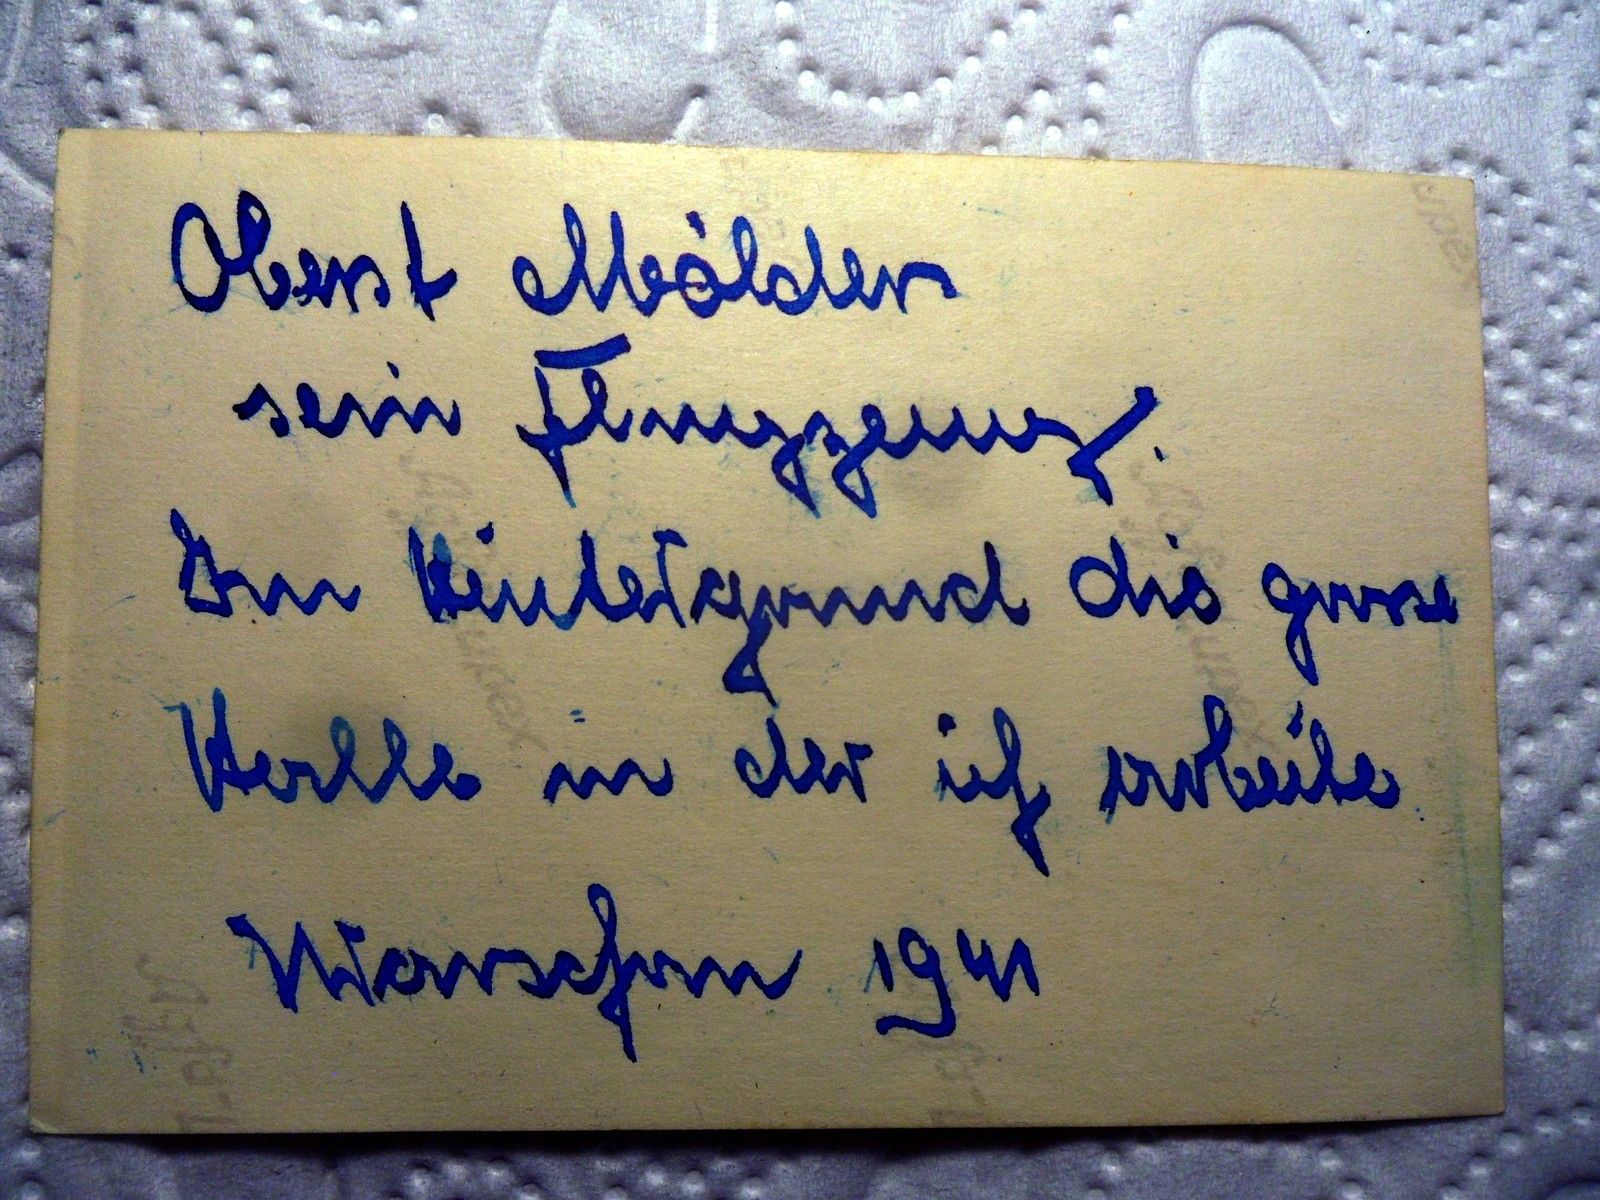 Oberst Mölders
sein Flugzeug.
Im Hintergrund die grose
Halle in der ich arbeite.
Warschau 1941